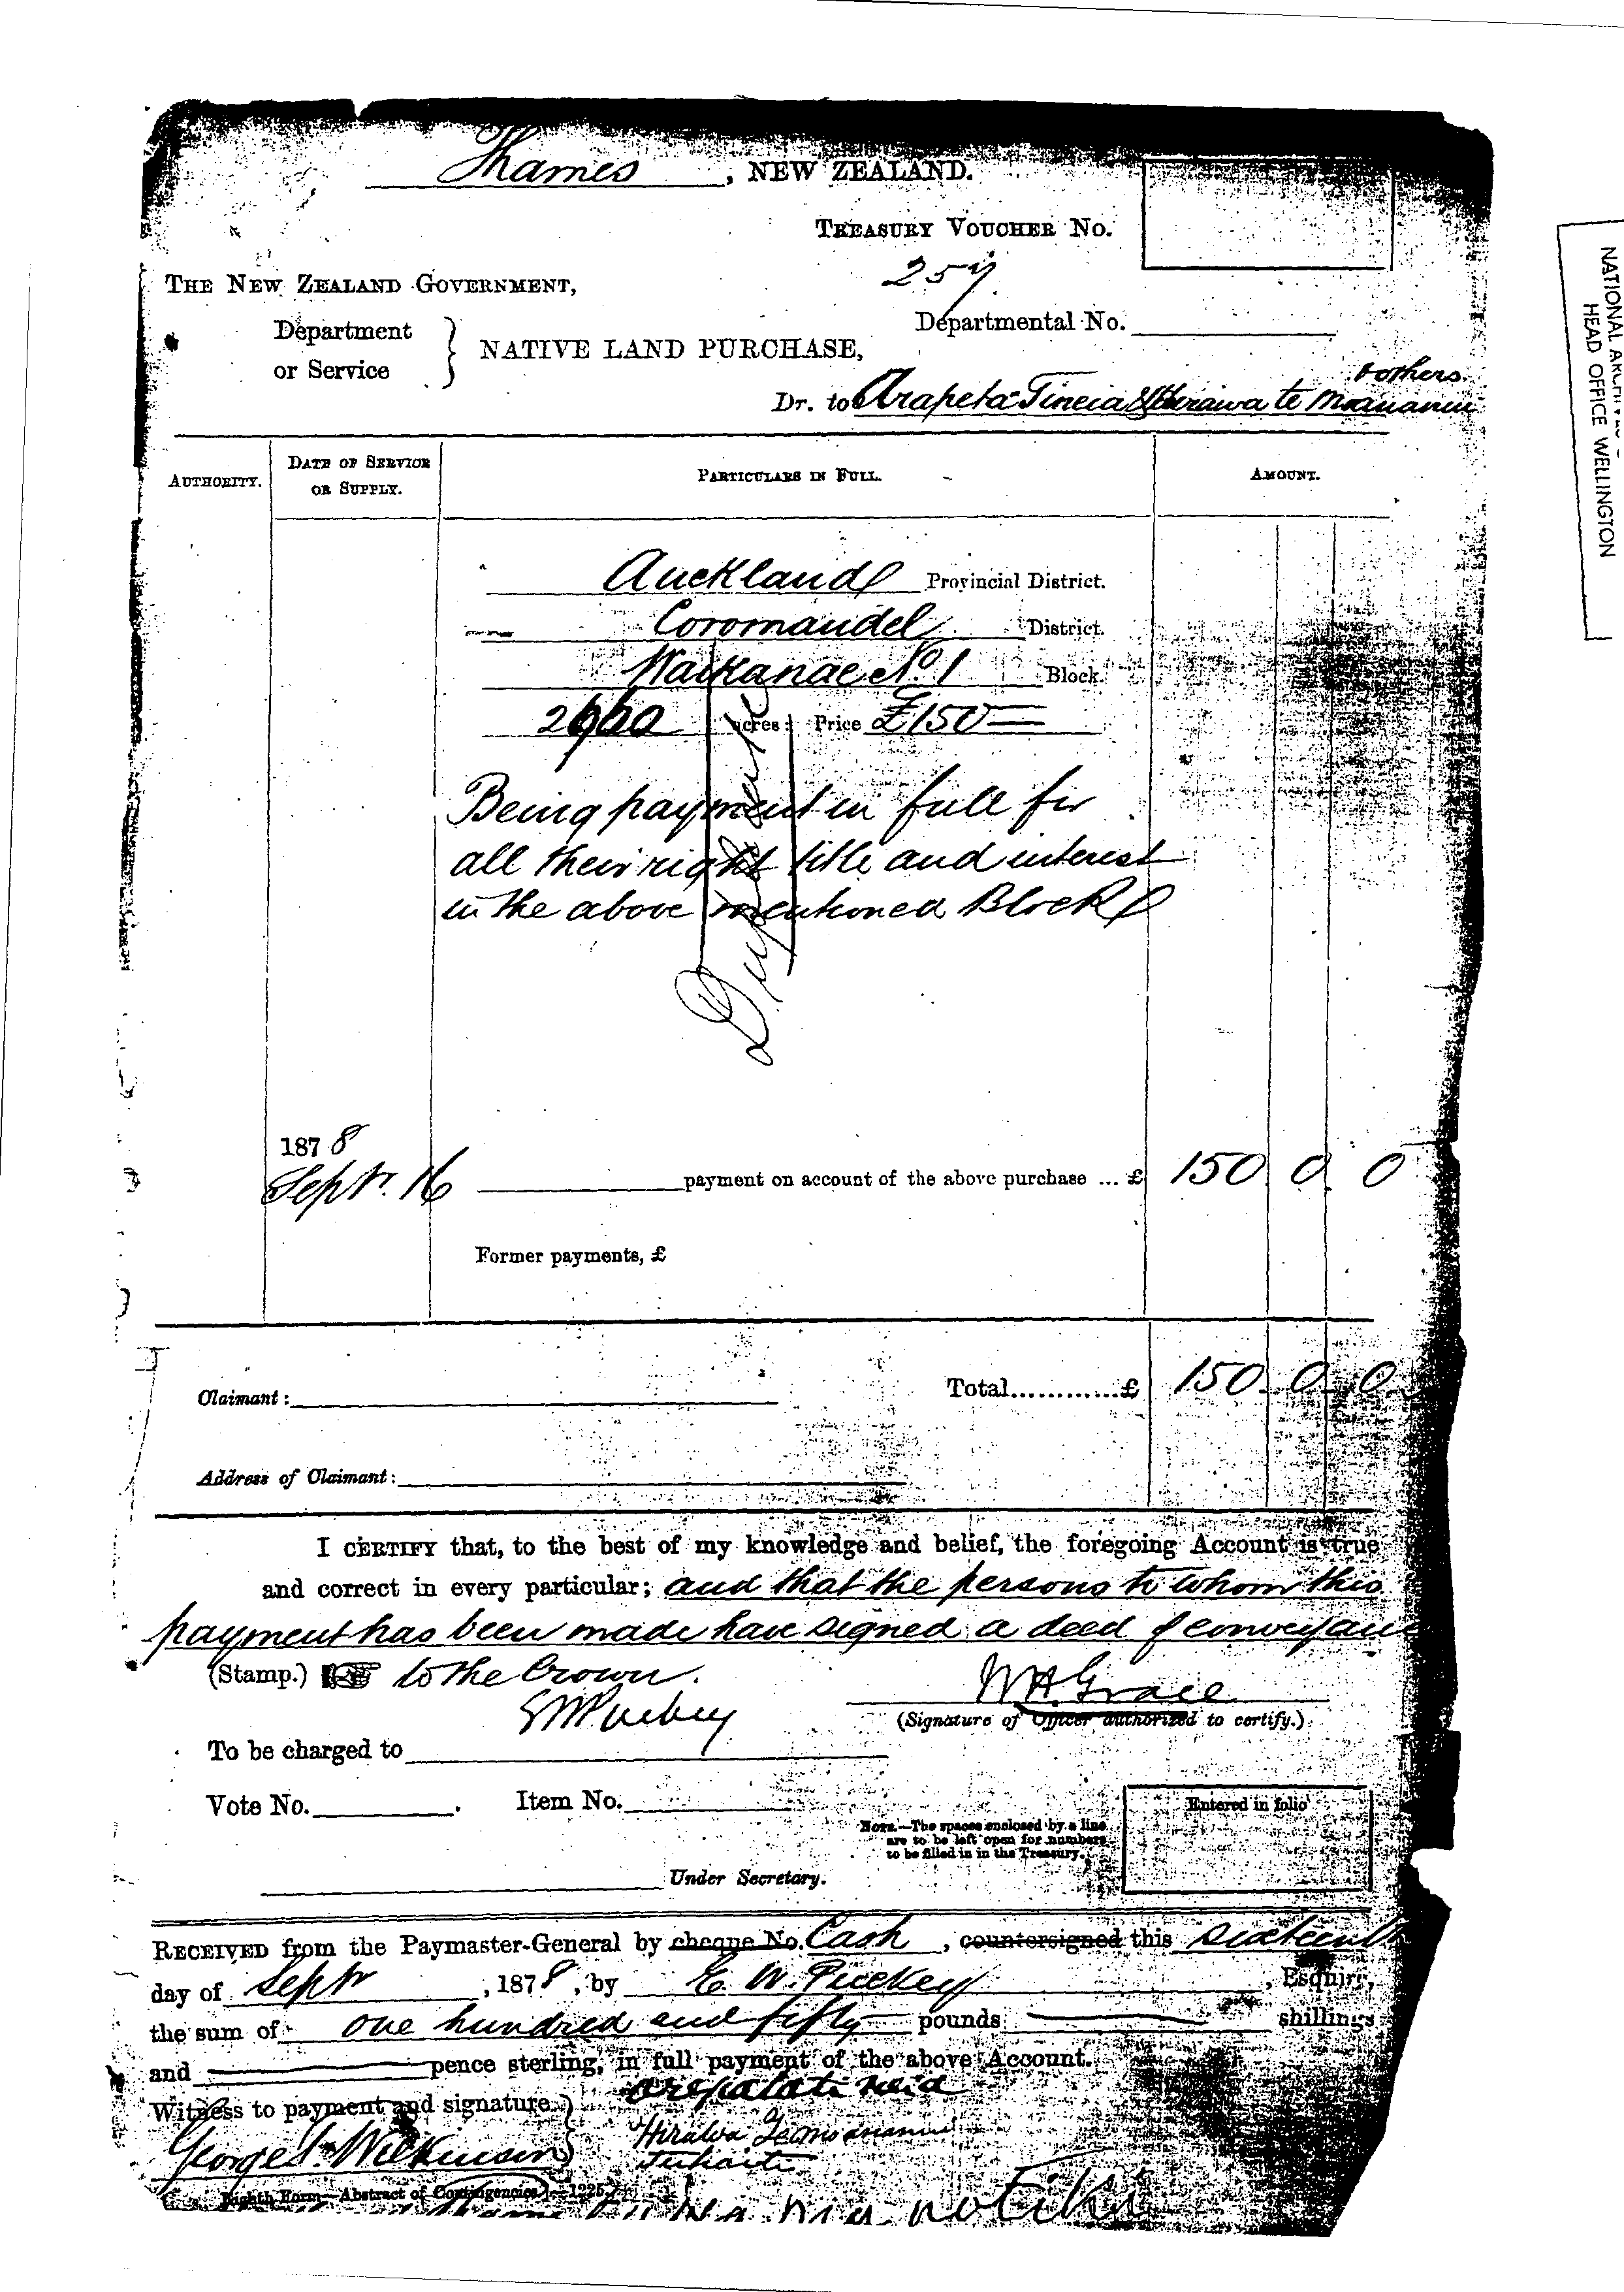 Thames, NEW ZEALAND.
TREASURY VOUCHER No.
257
THE NEW ZEALAND GOVERNMENT,
Departmental No.
Department
or Service } NATIVE LAND PURCHASE,
& others
Dr. to Arapeta Tineia & Hirawa te Moananui
NATIONAL ARCHIVES
HEAD OFFICE WELLINGTON
AUTHORITY. DATE OF SERVICE OR SUPPLY. PARTICULARS IN FULL. AMOUNT.
Auckland Provincial District.
Coromandel District.
Waikanae No. 1 Block.
acres: Price £150
Being payment in full for
all their right title and interest
in the above mentioned Block
Duplicate
1878
Septr. 16 payment on account of the above purchase ... £ 150 0 0
Former payments, £
Total............£ 150 0 0
Claimant:
Address of Claimant:
I CERTIFY that, to the best of my knowledge and belief, the foregoing Account is true
and correct in every particular; and that the persons to whom this
payment has been made have signed a deed of conveyance
(Stamp.) to the Crown.
E W Puckey
W H Grace
(Signature of Officer authorized to certify.)
To be charged to
Vote No. . Item No.
Entered in folio
NOTE.—The spaces enclosed by a line
are to be left open for numbers
to be filled in in the Treasury.
Under Secretary.
RECEIVED from the Paymaster-General by cheque No. Cash, countersigned this sixteenth
day of Septr, 1878, by E. W. Puckey, Esquire,
the sum of one hundred and fifty pounds shillings
and pence sterling, in full payment of the above Account.
Witness to payment and signature.)
Hirawa Te Moananui
George T. Wilkinson
Eighth Form—Abstract of Contingencies.—1225.